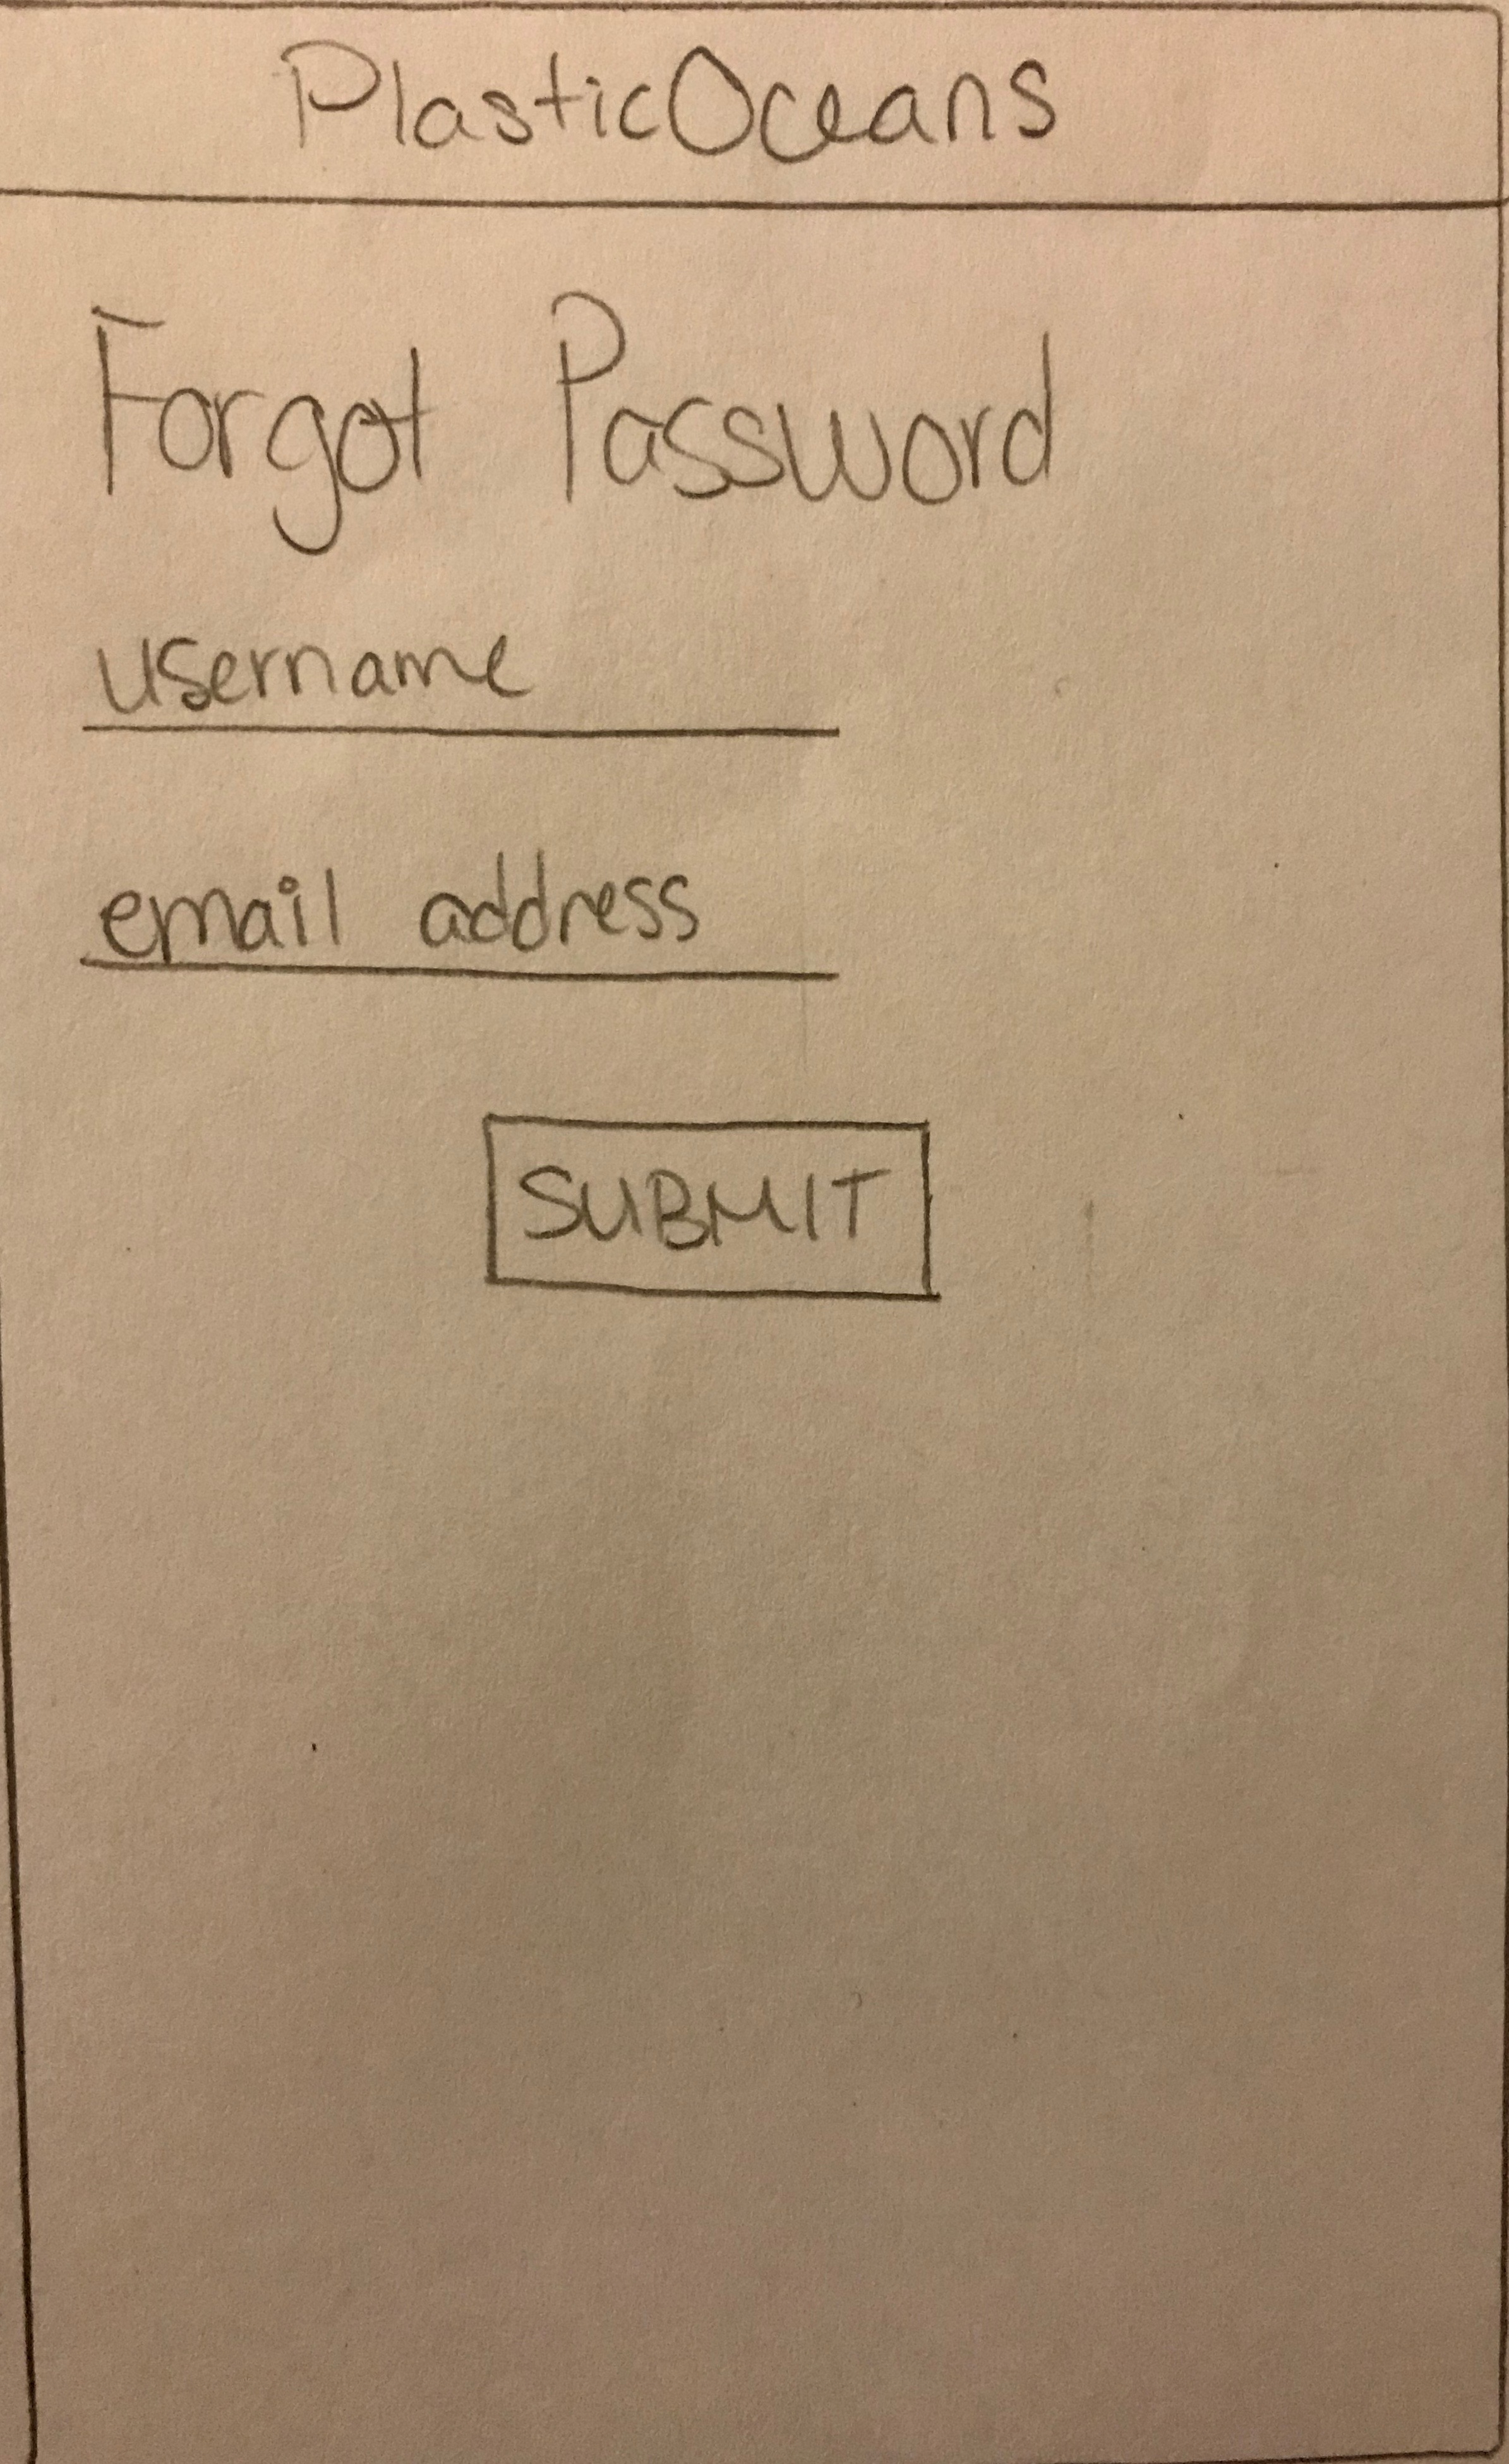 PlasticOceans
Forgot Password
username
email address
SUBMIT